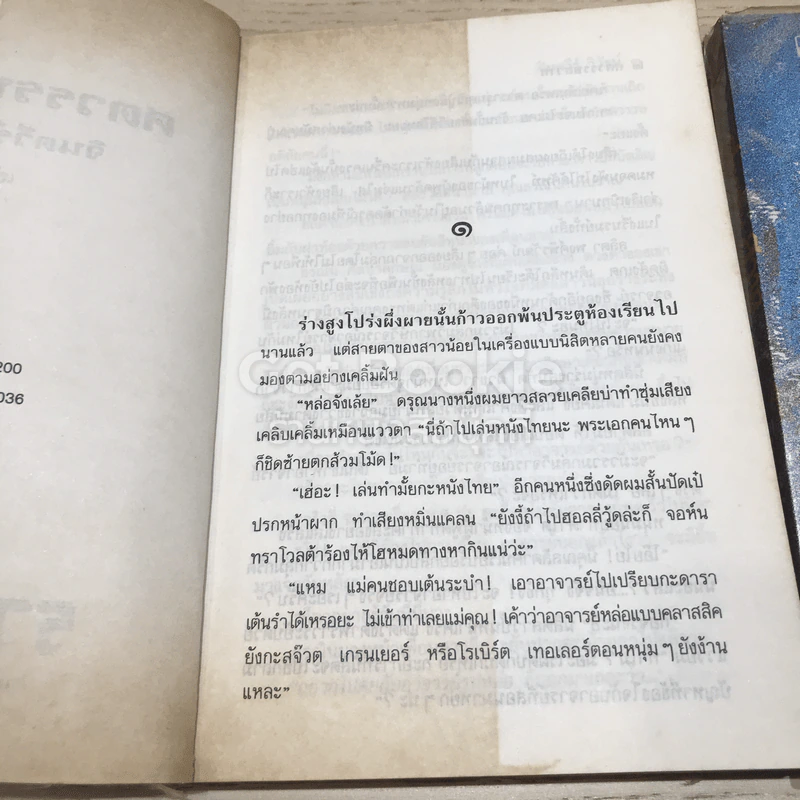 200
036
๑
ร่างสูงโปร่งผึ่งผายนั้นก้าวออกพ้นประตูห้องเรียนไป
นานแล้ว แต่สายตาของสาวน้อยในเครื่องแบบนิสิตหลายคนยังคง
มองตามอย่างเคลิ้มฝัน
“หล่อจังเล้ย” ดรุณนางหนึ่งผมยาวสลวยเคลียบ่าทำซุ่มเสียง
เคลิบเคลิ้มเหมือนแววตา “นี่ถ้าไปเล่นหนังไทยนะ พระเอกคนไหนๆ
ก็ชิดซ้ายตกส้วมโม้ด!”
“เฮ่อะ! เล่นทำมั้ยกะหนังไทย” อีกคนหนึ่งซึ่งดัดผมสั้นปัดเป๋
ปรกหน้าผาก ทำเสียงหมิ่นแคลน “ยังงี้ถ้าไปฮอลลี่วู้ดล่ะก็ จอห์น
ทราโวลต้าร้องไห้โฮหมดทางหากินแน่ว่ะ”
“แหม แม่คนชอบเต้นระบำ! เอาอาจารย์ไปเปรียบกะดารา
เต้นรำได้เหรอยะ ไม่เข้าท่าเลยแม่คุณ! เค้าว่าอาจารย์หล่อแบบคลาสสิค
ยังกะสจ๊วต เกรนเยอร์ หรือโรเบิร์ต เทอเลอร์ตอนหนุ่มๆ ยังง้าน
แหละ”
Get Bookie